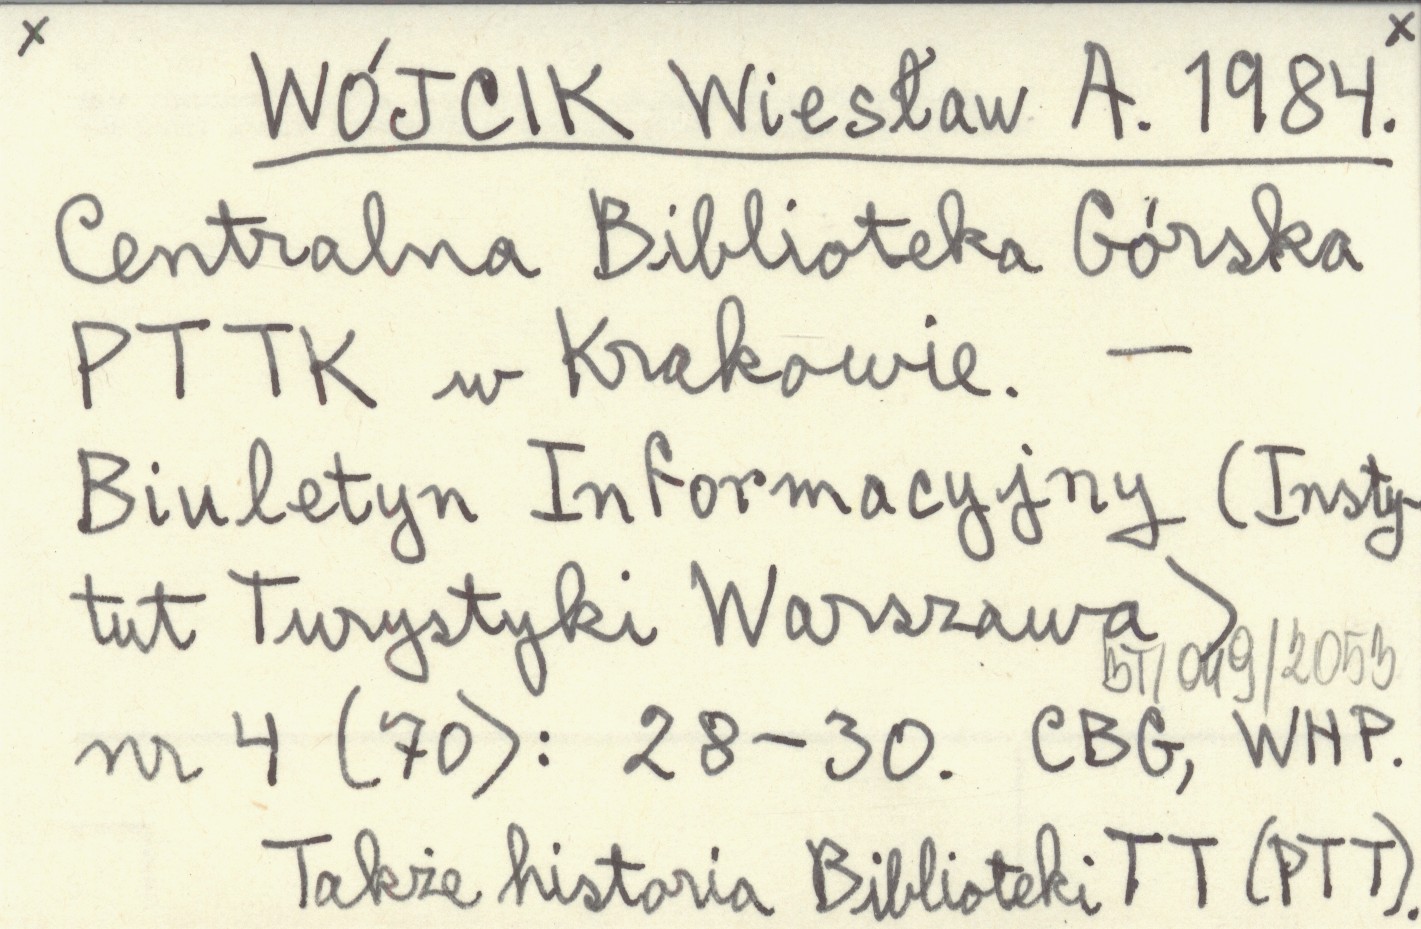 x x
WÓJCIK Wiesław A. 1984.
Centralna Biblioteka Górska
PTTK w Krakowie. —
Biuletyn Informacyjny (Insty-
tut Turystyki Warszawa)
049/2053
nr 4 (70): 28-30. CBG, WHP.
Także historia Biblioteki TT (PTT).